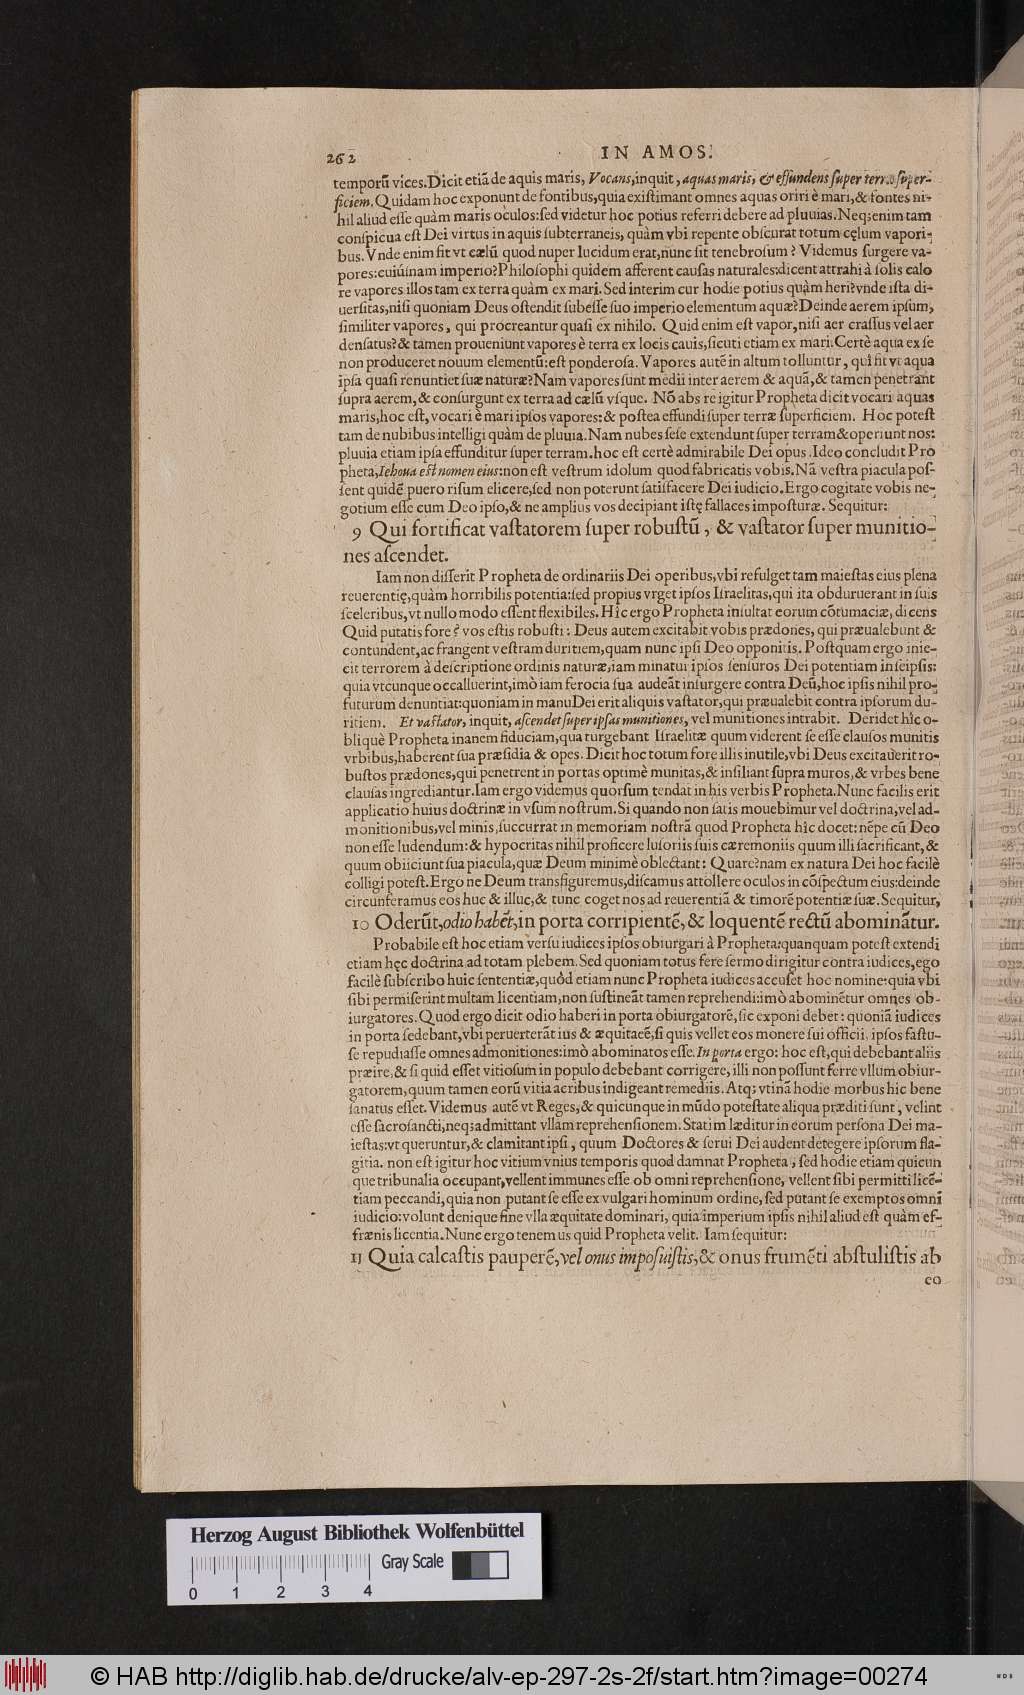 262
IN AMOS.
temporū vices. Dicit etiā de aquis maris, Vocans, inquit, aquas maris, & effundens super terræ super-
ficiem. Quidam hoc exponunt de fontibus, quia existimant omnes aquas oriri è mari, & fontes ni-
hil aliud esse quàm maris oculos: sed videtur hoc potius referri debere ad pluuias. Neq; enim tam
conspicua est Dei virtus in aquis subterraneis, quàm vbi repente obscurat totum cęlum vapori-
bus. Vnde enim fit vt cælū quod nuper lucidum erat, nūnc sit tenebrosum? Videmus surgere va-
pores: cuiúsnam imperio? Philosophi quidem afferent causas naturales: dicent attrahi à solis calo
re vapores illos tam ex terra quàm ex mari. Sed interim cur hodie potius quàm heri? vnde ista di-
uersitas, nisi quoniam Deus ostendit subesse suo imperio elementum aquæ? Deinde aerem ipsum,
similiter vapores, qui procreantur quasi ex nihilo. Quid enim est vapor, nisi aer crassus vel aer
densatus? & tamen proueniunt vapores è terra ex locis cauis, sicuti etiam ex mari. Certè aqua ex se
non produceret nouum elementū: est ponderosa. Vapores autē in altum tolluntur, quî fit vt aqua
ipsa quasi renuntiet suæ naturæ? Nam vapores sunt medii inter aerem & aquā, & tamen penetrant
supra aerem, & consurgunt ex terra ad cælū vsque. Nō abs re igitur Propheta dicit vocari aquas
maris, hoc est, vocari è mari ipsos vapores: & postea effundi super terræ superficiem. Hoc potest
tam de nubibus intelligi quàm de pluuia. Nam nubes sese extendunt super terram & operiunt nos:
pluuia etiam ipsa effunditur super terram. hoc est certè admirabile Dei opus. Ideo concludit Pro
pheta, Iehoua est nomen eius: non est vestrum idolum quod fabricatis vobis. Nā vestra piacula pos-
sent quidē puero risum elicere, sed non poterunt satisfacere Dei iudicio. Ergo cogitate vobis ne-
gotium esse cum Deo ipso, & ne amplius vos decipiant istę fallaces imposturæ. Sequitur:
9 Qui fortificat vastatorem super robustū, & vastator super munitio-
nes ascendet.
Iam non disserit Propheta de ordinariis Dei operibus, vbi refulget tam maiestas eius plena
reuerentię, quàm horribilis potentia: sed propius vrget ipsos Israelitas, qui ita obduruerant in suis
sceleribus, vt nullo modo essent flexibiles. Hîc ergo Propheta insultat eorum cōtumaciæ, dicens
Quid putatis fore? vos estis robusti: Deus autem excitabit vobis prædones, qui præualebunt &
contundent, ac frangent vestram duritiem, quam nunc ipsi Deo opponitis. Postquam ergo inie-
cit terrorem à descriptione ordinis naturæ, iam minatur ipsos sensuros Dei potentiam in seipsis:
quia vtcunque occalluerint, imò iam ferocia sua audeāt insurgere contra Deū, hoc ipsis nihil pro-
futurum denuntiat: quoniam in manu Dei erit aliquis vastator, qui præualebit contra ipsorum du-
ritiem. Et vastator, inquit, ascendet super ipsas munitiones, vel munitiones intrabit. Deridet hîc o-
bliquè Propheta inanem fiduciam, qua turgebant Israelitæ quum viderent se esse clausos munitis
vrbibus, haberent sua præsidia & opes. Dicit hoc totum fore illis inutile, vbi Deus excitauerit ro-
bustos prædones, qui penetrent in portas optimè munitas, & insiliant supra muros, & vrbes bene
clausas ingrediantur. Iam ergo videmus quorsum tendat in his verbis Propheta. Nunc facilis erit
applicatio huius doctrinæ in vsum nostrum. Si quando non satis mouebimur vel doctrina, vel ad-
monitionibus, vel minis, succurrat in memoriam nostrā quod Propheta hîc docet: nēpe cū Deo
non esse ludendum: & hypocritas nihil proficere lusoriis suis cæremoniis quum illi sacrificant, &
quum obiiciunt sua piacula, quæ Deum minimè oblectant: Quare? nam ex natura Dei hoc facilè
colligi potest. Ergo ne Deum transfiguremus, discamus attollere oculos in cōspectum eius: deinde
circunferamus eos huc & illuc, & tunc coget nos ad reuerentiā & timorē potentiæ suæ. Sequitur,
10 Oderūt, odio habēt, in porta corripientē, & loquentē rectū abominātur.
Probabile est hoc etiam versu iudices ipsos obiurgari à Propheta: quanquam potest extendi
etiam hęc doctrina ad totam plebem. Sed quoniam totus fere sermo dirigitur contra iudices, ego
facilè subscribo huic sententiæ, quòd etiam nunc Propheta iudices accuset hoc nomine: quia vbi
sibi permiserint multam licentiam, non sustineāt tamen reprehendi: imò abominētur omnes ob-
iurgatores. Quod ergo dicit odio haberi in porta obiurgatorē, sic exponi debet: quoniā iudices
in porta sedebant, vbi peruerterāt ius & æquitatē, si quis vellet eos monere sui officii, ipsos fastu-
se repudiasse omnes admonitiones: imò abominatos esse. In porta ergo: hoc est, qui debebant aliis
præire, & si quid esset vitiosum in populo debebant corrigere, illi non possunt ferre vllum obiur-
gatorem, quum tamen eorū vitia acribus indigeant remediis. Atq; vtinā hodie morbus hic bene
sanatus esset. Videmus autē vt Reges, & quicunque in mūdo potestate aliqua præditi sunt, velint
esse sacrosancti, neq; admittant vllam reprehensionem. Statim læditur in eorum persona Dei ma-
iestas: vt queruntur, & clamitant ipsi, quum Doctores & serui Dei audent detegere ipsorum fla-
gitia. non est igitur hoc vitium vnius temporis quod damnat Propheta, sed hodie etiam quicun
que tribunalia occupant, vellent immunes esse ob omni reprehensione, vellent sibi permitti licē-
tiam peccandi, quia non putant se esse ex vulgari hominum ordine, sed putant se exemptos omni
iudicio: volunt denique sine vlla æquitate dominari, quia imperium ipsis nihil aliud est quàm ef-
frænis licentia. Nunc ergo tenemus quid Propheta velit. Iam sequitur:
11 Quia calcastis pauperē, vel onus imposuistis, & onus frumēti abstulistis ab
eo
Herzog August Bibliothek Wolfenbüttel
Gray Scale
0 1 2 3 4
© HAB http://diglib.hab.de/drucke/alv-ep-297-2s-2f/start.htm?image=00274